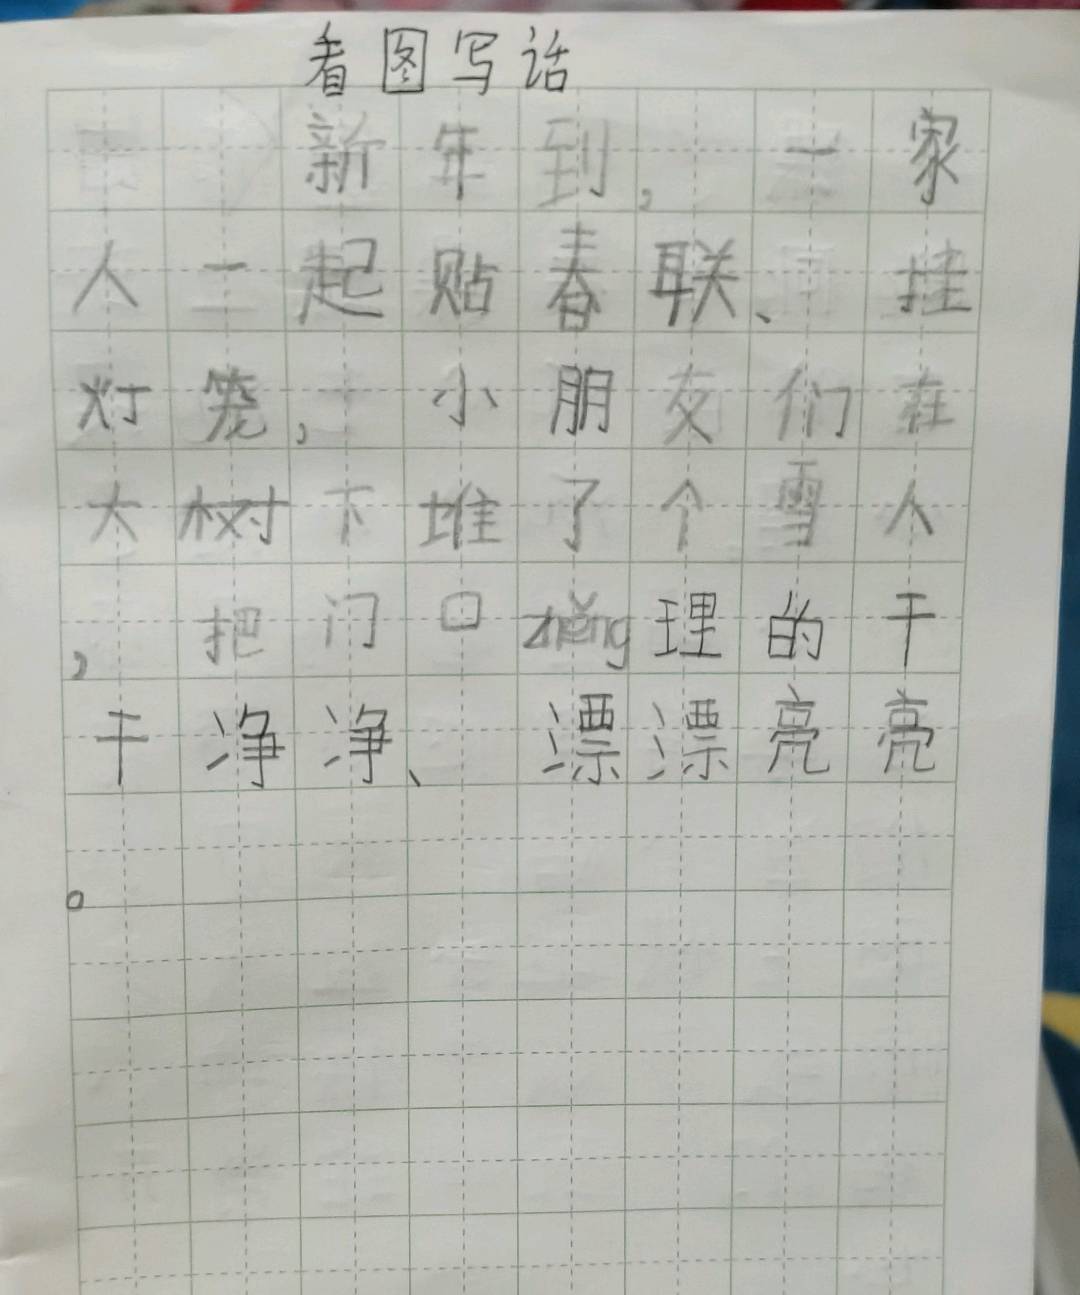 看图写话
新年到，一家
人一起贴春联、挂
灯笼，小朋友们在
大树下堆了个雪人
，把门口zhěng理的干
干净净、漂漂亮亮
。